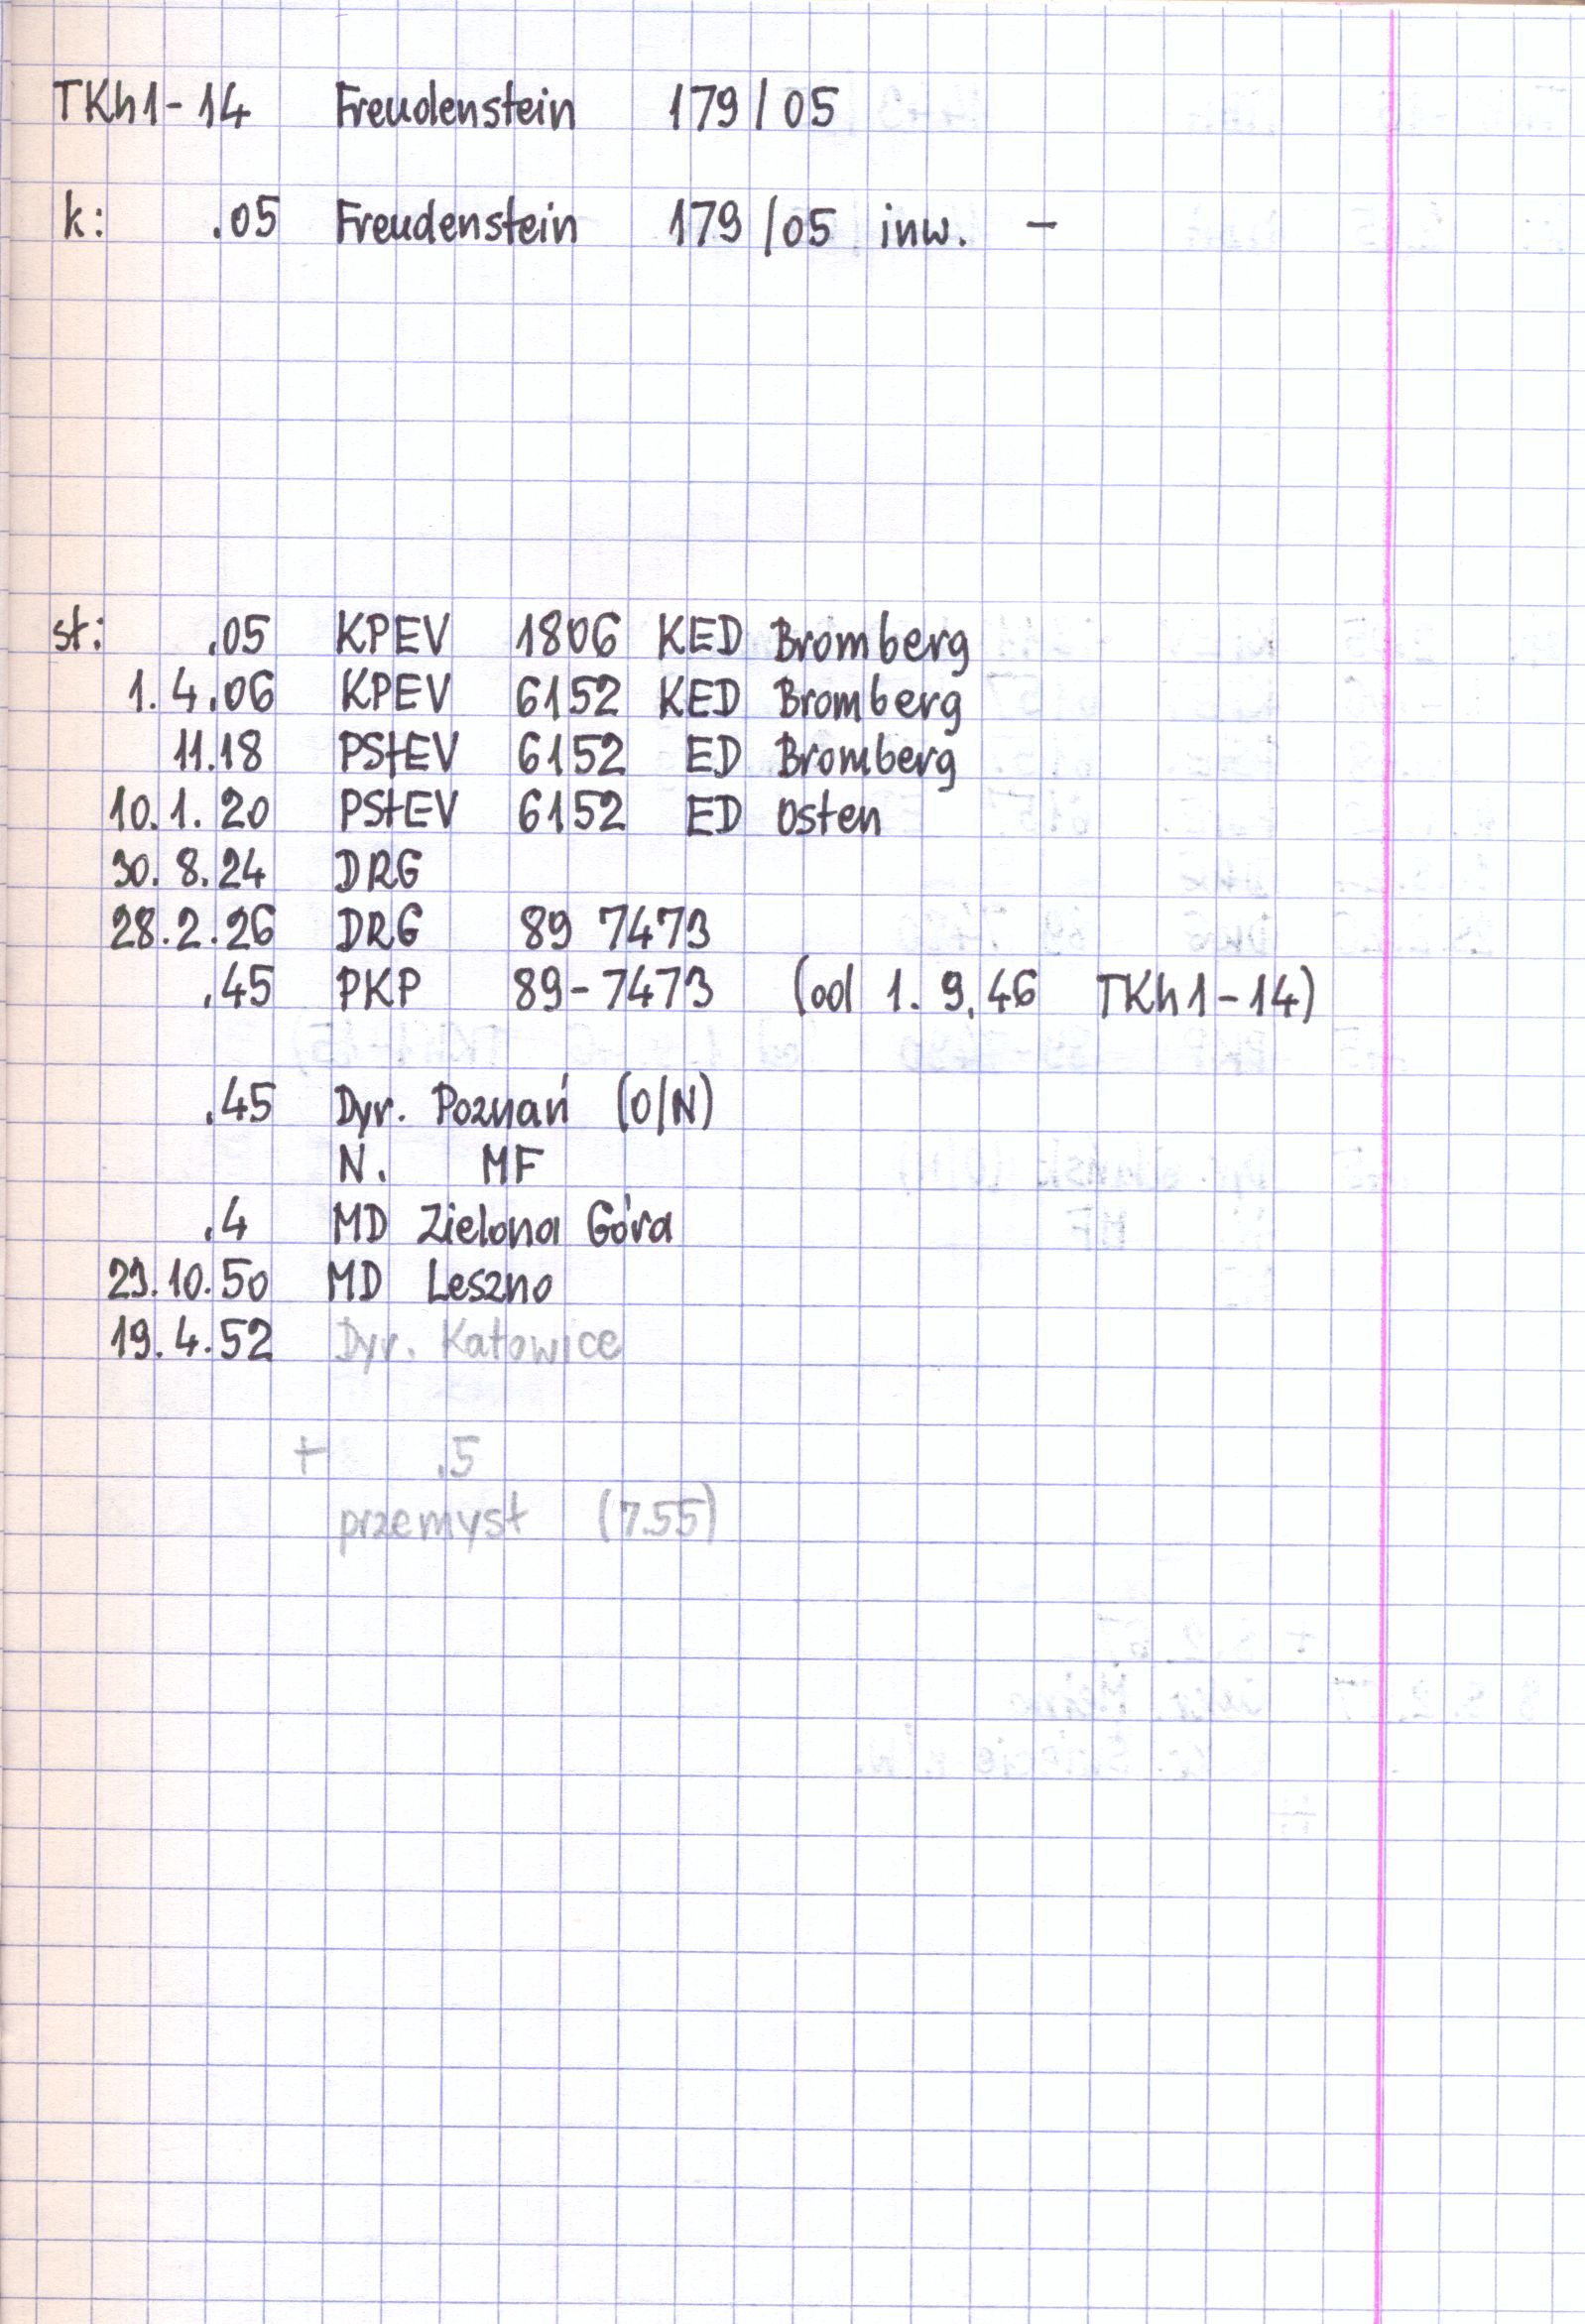 TKh1-14 Freudenstein 179/05
k: .05 Freudenstein 179/05 inw. -
st: .05 KPEV 1806 KED Bromberg
1.4.06 KPEV 6152 KED Bromberg
11.18 PStEV 6152 ED Bromberg
10.1.20 PStEV 6152 ED Osten
30.8.24 DRG
28.2.26 DRG 89 7473
.45 PKP 89-7473 (od 1.9.46 TKh1-14)
.45 Dyr. Poznań (O/N)
N. MF
.4 MD Zielona Góra
29.10.50 MD Leszno
19.4.52 Dyr. Katowice
+ .5
przemysł (7.55)